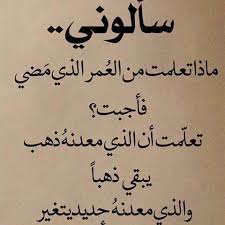 سألوني..
ماذا تعلمت من العُمر الذي مَضي
فأجبت؟
تعلّمت أن الذي معدنهُ ذهب
يبقي ذهباً
والذي معدنهُ حديد يتغير